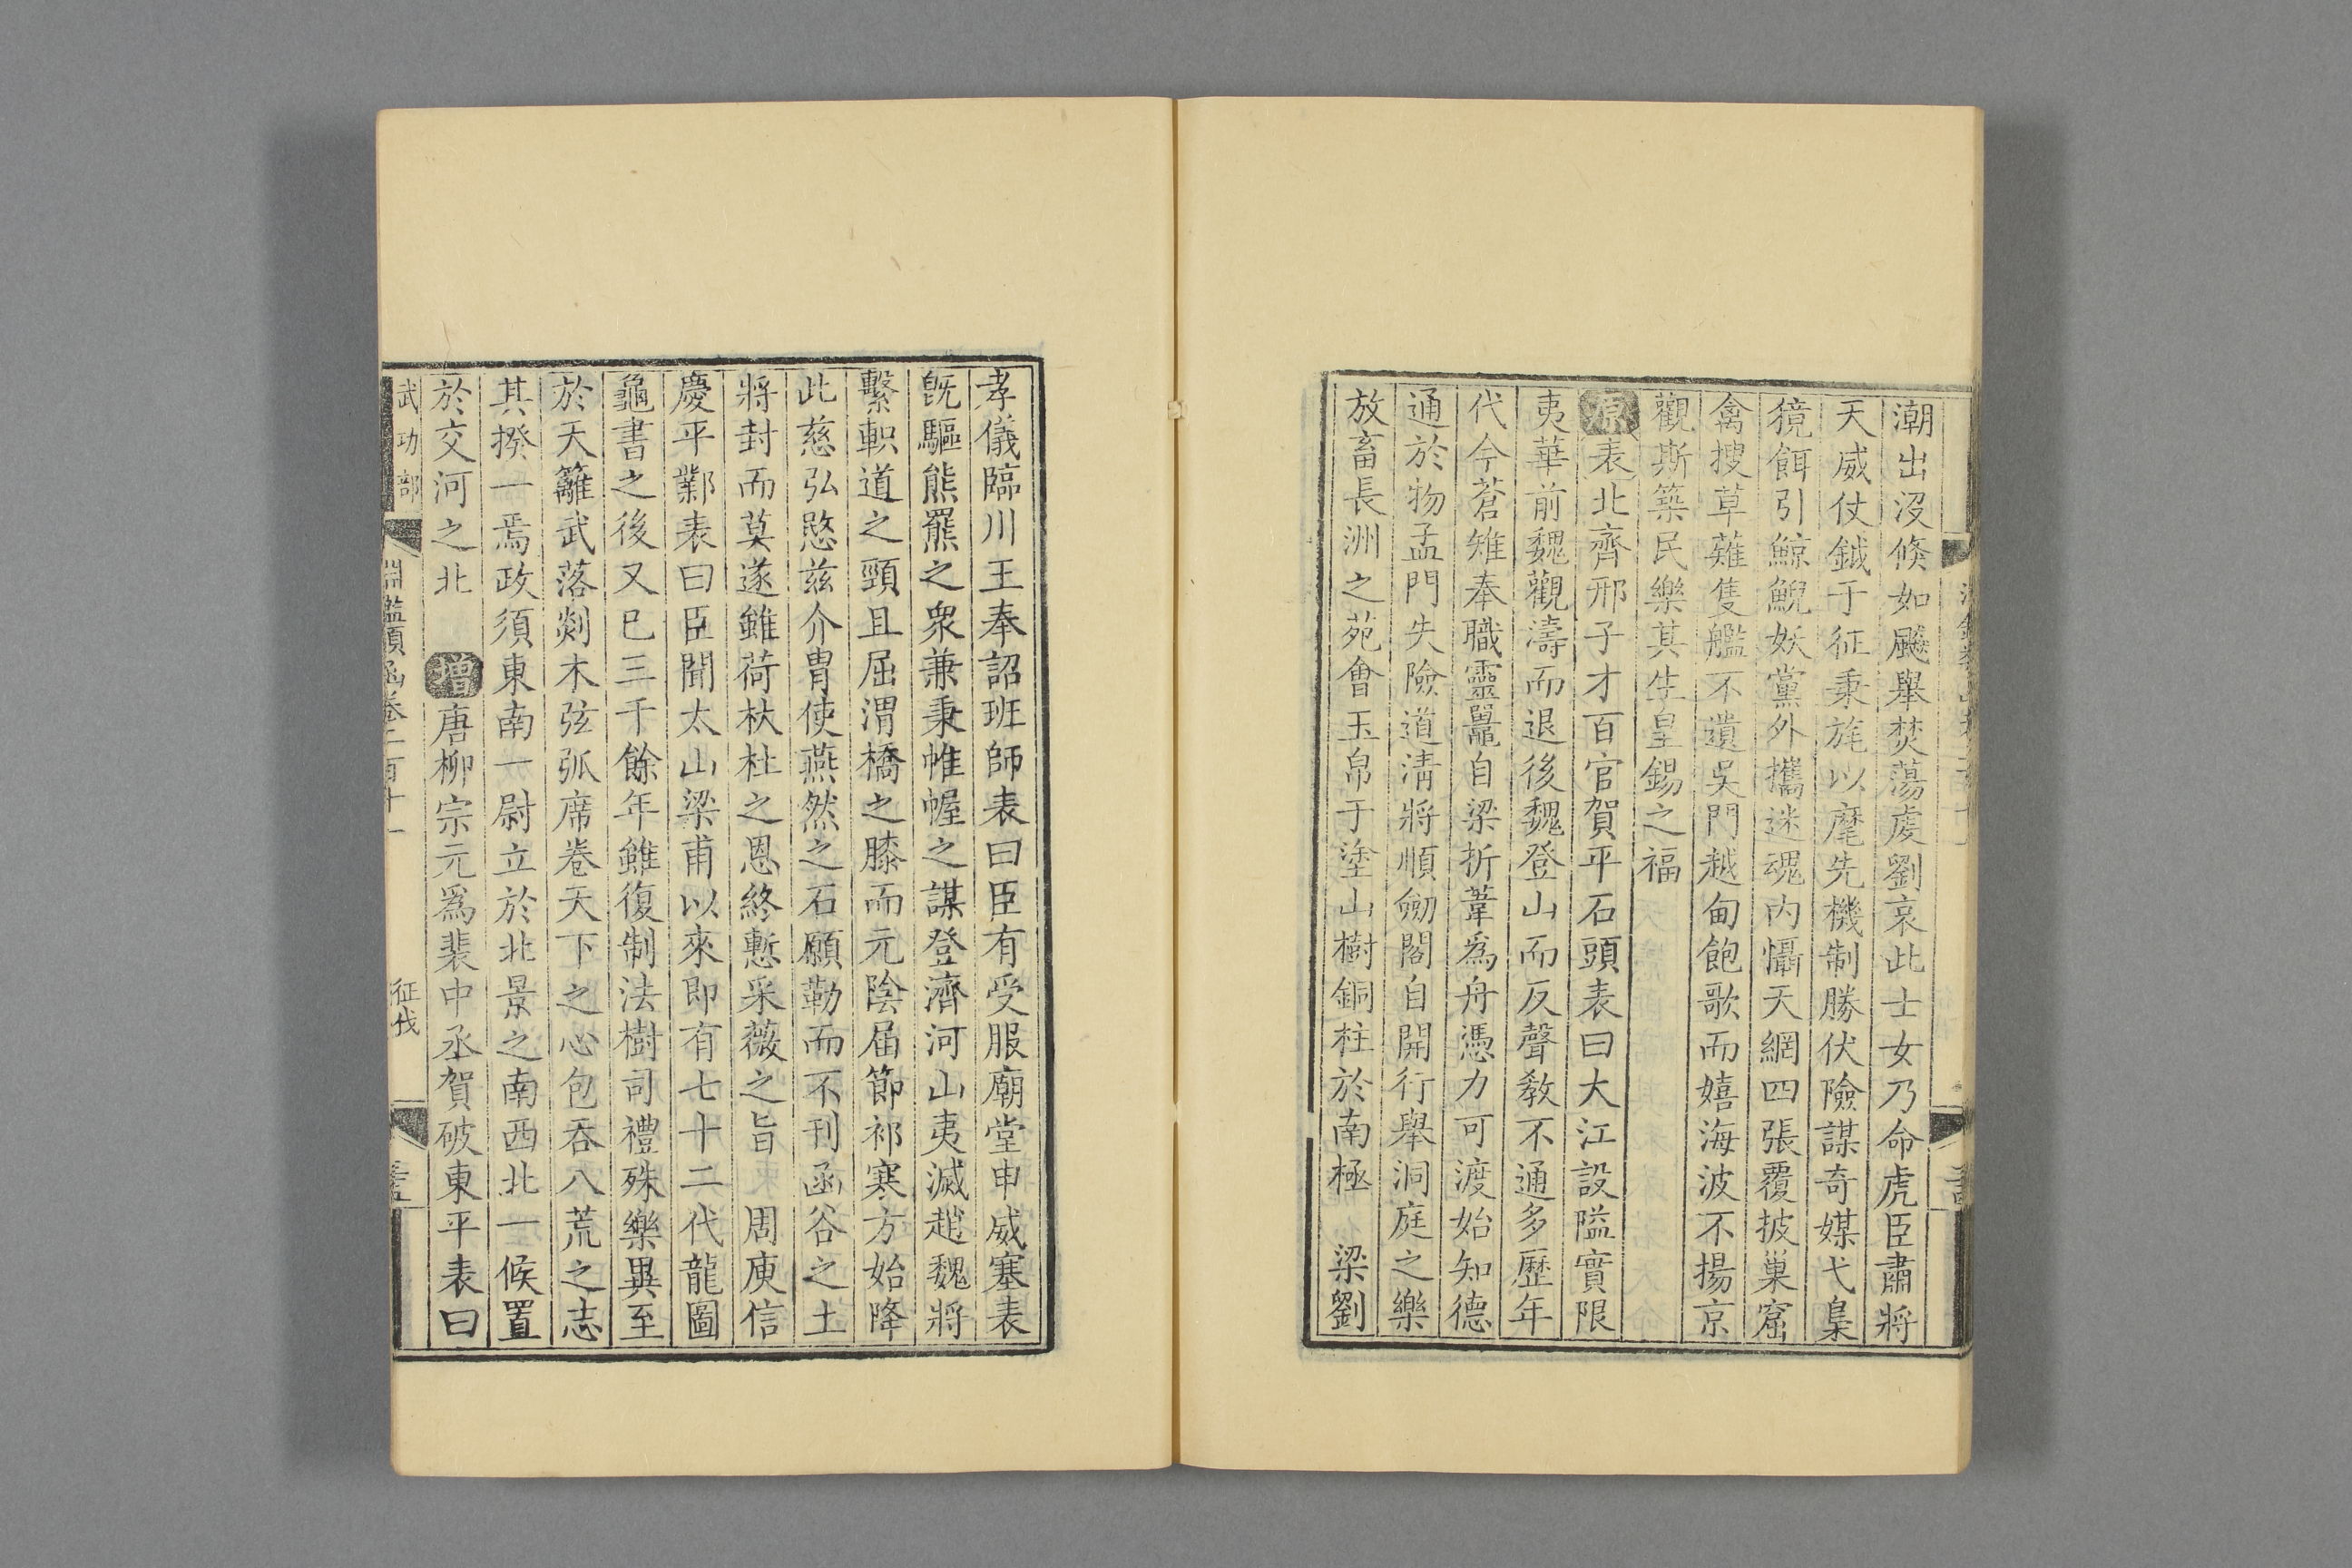 潮出沒倐如飇舉焚蕩虔劉哀此士女乃命虎臣肅將
天威仗鉞于征秉旄以麾先機制勝伏險謀奇媒弋梟
獍餌引鯨鯢妖黨外攜迷魂内懾天網四張覆披巢窟
禽搜草薙隻艦不遺吳門越甸飽歌而嬉海波不揚京
觀斯築民樂其生皇錫之福
原表北齊邢子才百官賀平石頭表曰大江設隘實限
夷華前魏觀濤而退後魏登山而反聲敎不通多歷年
代今蒼雉奉職靈鼍自梁折葦爲舟憑力可渡始知德
通於物孟門失險道淸將順劒閣自開行舉洞庭之樂
放畜長洲之苑會玉帛于塗山樹銅柱於南極 梁劉
孝儀臨川王奉詔班師表曰臣有受服廟堂申威塞表
旣驅熊羆之衆兼秉帷幄之謀登濟河山夷滅趙魏將
繫軹道之頸且屈渭橋之膝而元陰屆節祁寒方始降
此慈弘愍茲介胄使燕然之石願勒而不刊函谷之土
將封而莫遂雖荷杕杜之恩終慙采薇之旨 周庾信
慶平鄴表曰臣聞太山梁甫以來即有七十二代龍圖
龜書之後又已三千餘年雖復制法樹司禮殊樂異至
於天籬武落剡木弦弧席卷天下之心包吞八荒之志
其揆一焉政須東南一尉立於北景之南西北一候置
於交河之北 增唐柳宗元爲裴中丞賀破東平表曰
武功部 淵鑑類函卷二百十一 征伐